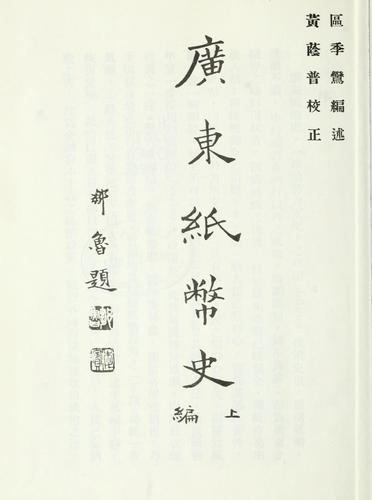 區季鸞編述
黃蔭普校正
廣東紙幣史
上編
鄒魯題